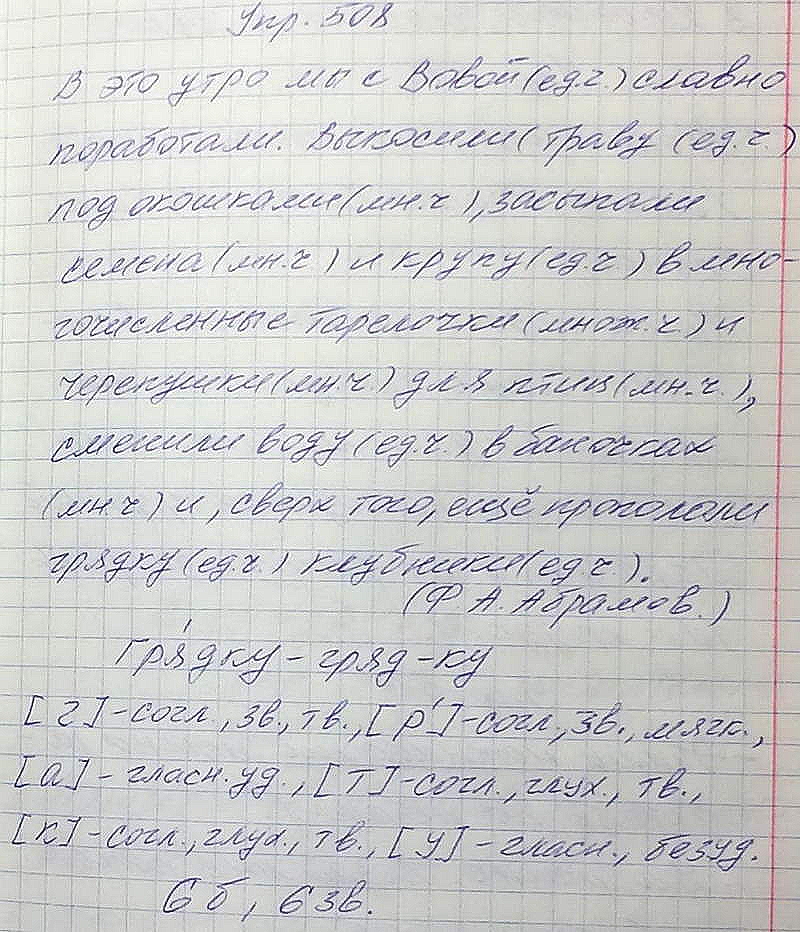 Упр. 508
В это утро мы с Вовой (ед.ч.) славно
поработали. Выкосили (траву (ед.ч.)
под окошками (мн.ч), засыпали
семена (мн.ч) и крупу (ед.ч) в мно-
гочисленные тарелочки (множ.ч.) и
черепушки (мн.ч.) для птиц (мн.ч.),
сменили воду (ед.ч.) в баночках
(мн.ч) и, сверх того, ещё пропололи
грядку (ед.ч.) клубники (ед.ч.).
(Ф А. Абрамов.)
Гря́дку - гряд-ку
[г] - согл., зв., тв., [р'] - согл., зв., мягк.,
[а] - гласн. уд., [т] - согл., глух., тв.,
[к] - согл., глух., тв., [у] - гласн., безуд.
6 б, 6 зв.